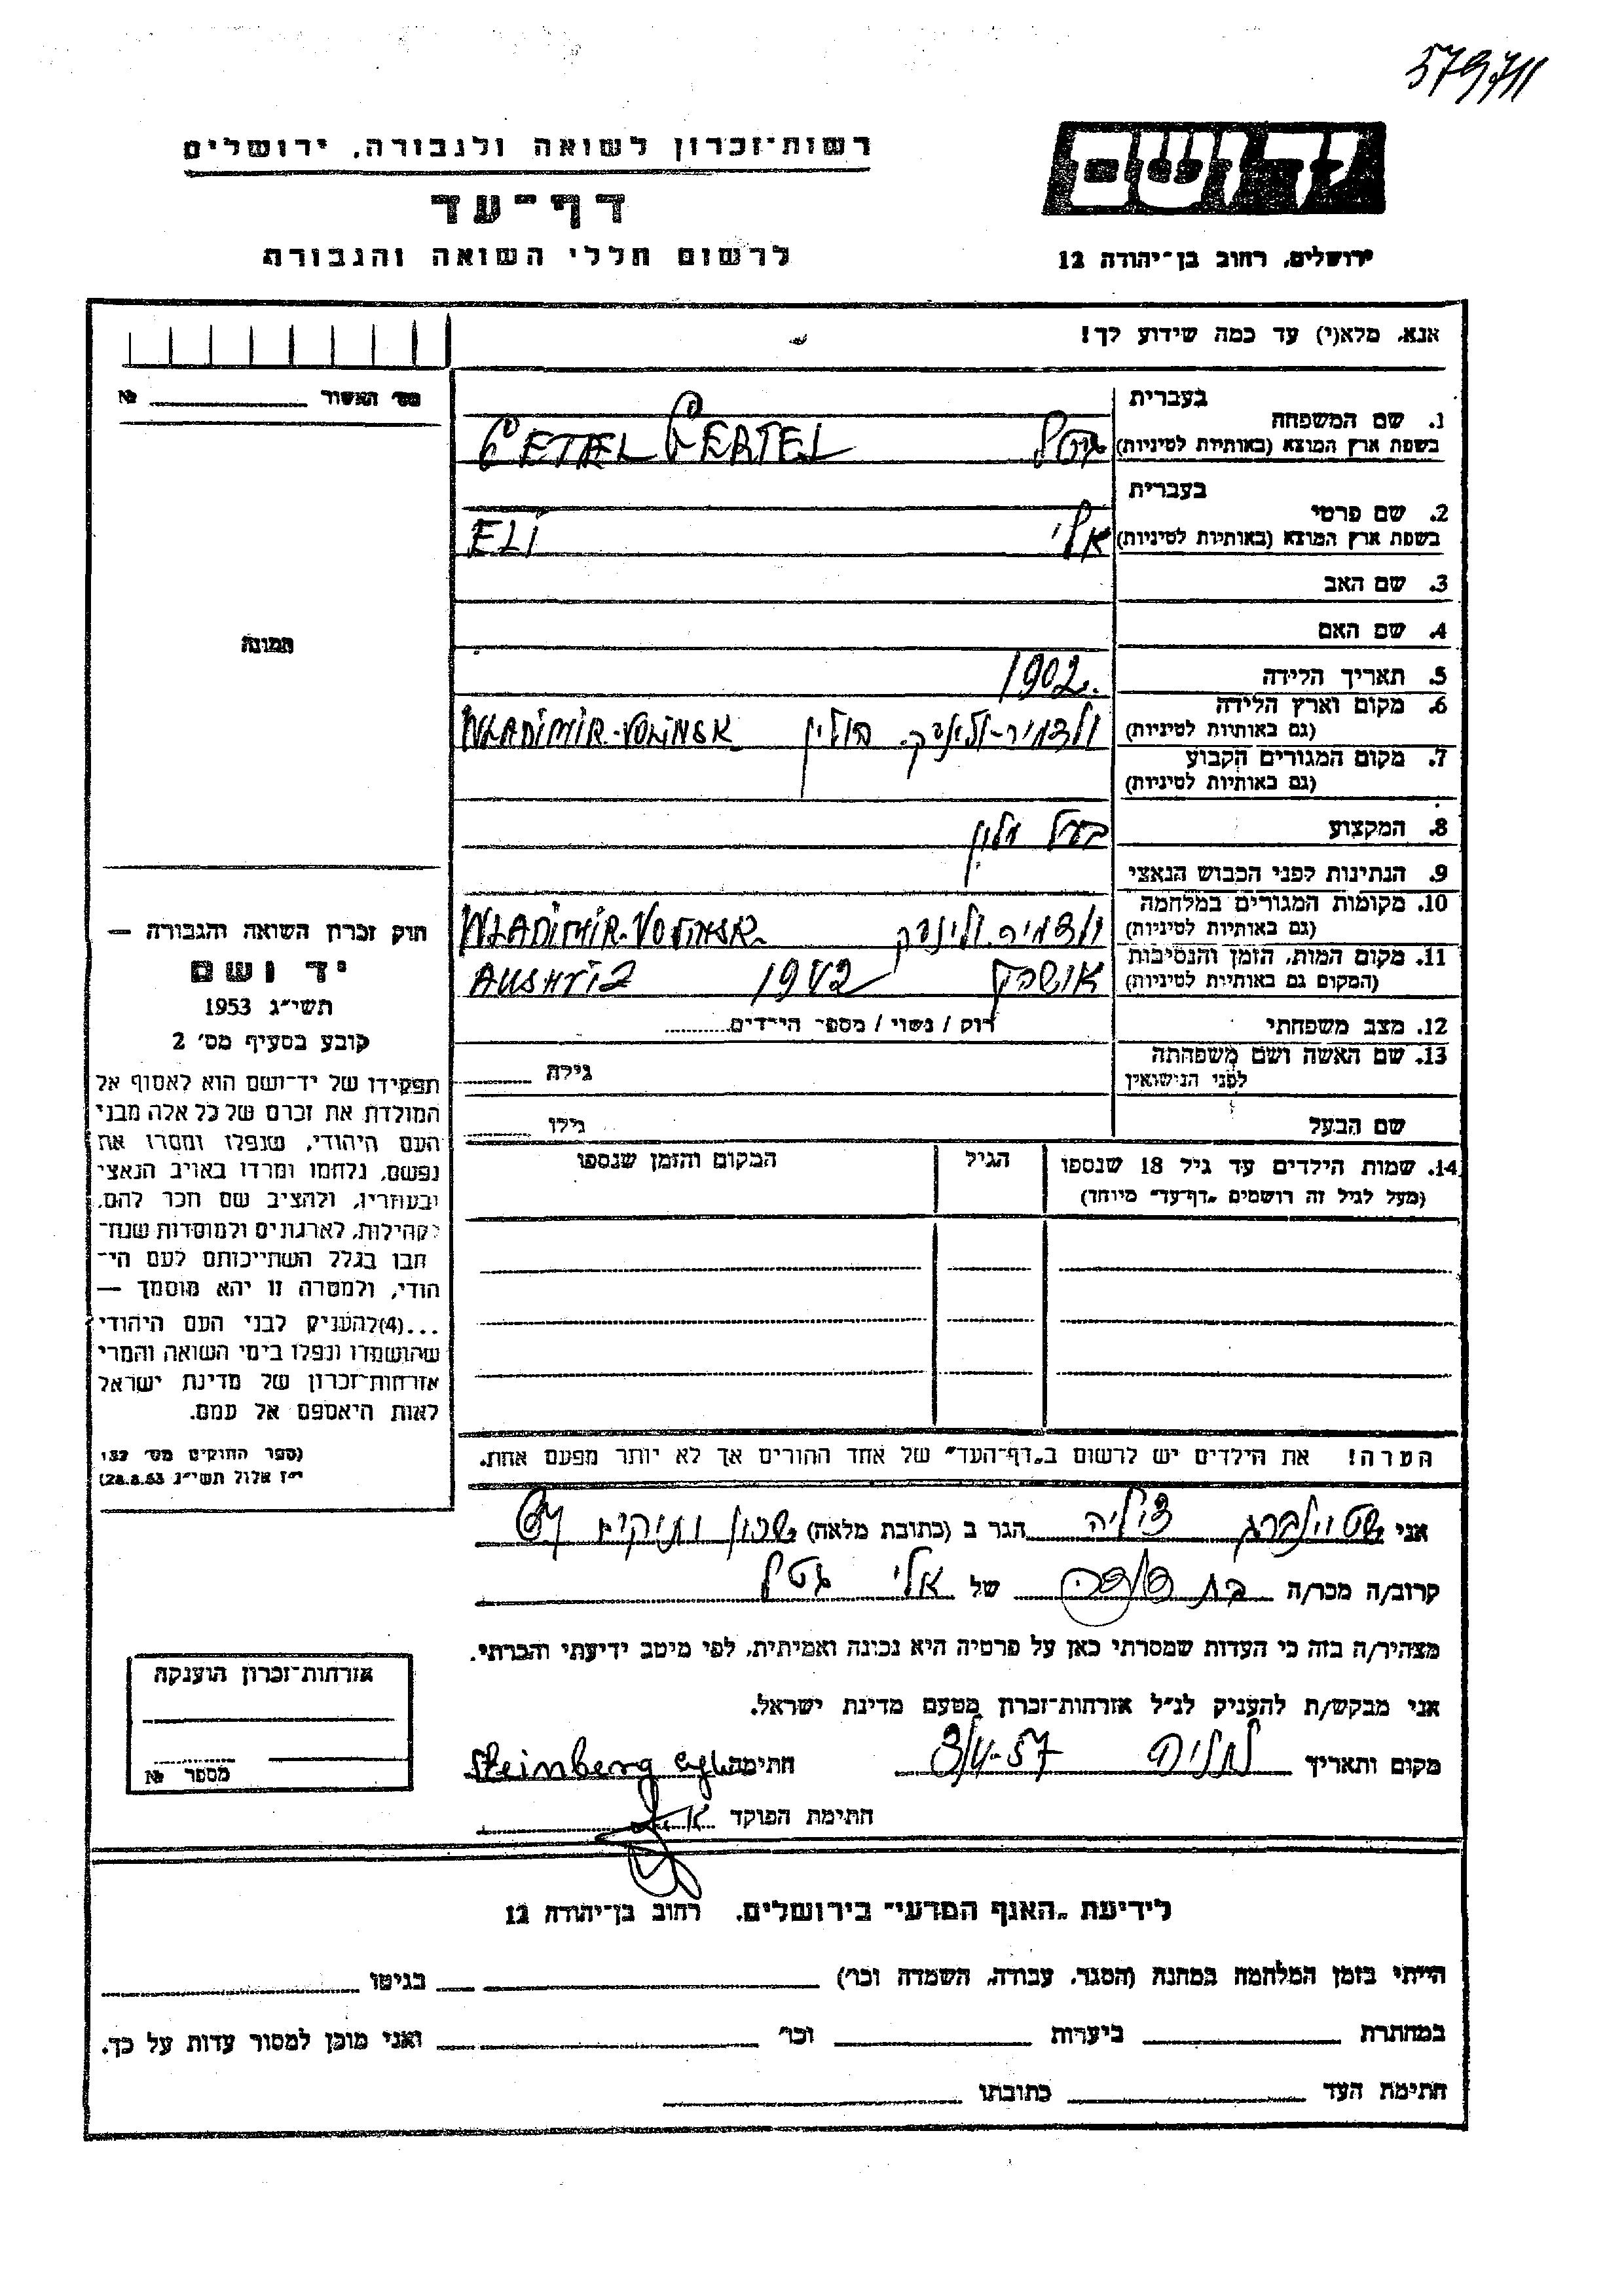 579711
רשות־זכרון לשואה ולגבורה, ירושלים
דף־עד
לרשום חללי השואה והגבורה
יד ושם
ירושלים, רחוב בן־יהודה 12
אנא, מלא(י) עד כמה שידוע לך!
מס׳ האשור № 
1. שם המשפחה
בעברית
בשפת ארץ המוצא (באותיות לטיניות)
גרטל GERTEL
2. שם פרטי
בעברית
בשפת ארץ המוצא (באותיות לטיניות)
אלי ELI
3. שם האב
4. שם האם
תמונה
5. תאריך הלידה 1902
6. מקום וארץ הלידה
(גם באותיות לטיניות)
פולין WLADIMIR-VOLINSK
7. מקום המגורים הקבוע
(גם באותיות לטיניות)
8. המקצוע בעל מלון
9. הנתינות לפני הכבוש הנאצי
10. מקומות המגורים במלחמה
(גם באותיות לטיניות)
11. מקום המות, הזמן והנסיבות
(המקום גם באותיות לטיניות)
1942
12. מצב משפחתי רוק / נשוי / מספר הילדים
13. שם האשה ושם משפחתה
לפני הנישואין
גילה
שם הבעל גילו
14. שמות הילדים עד גיל 18 שנספו הגיל המקום והזמן שנספו
(מעל לגיל זה רושמים „דף־עד״ מיוחד)
הערה! את הילדים יש לרשום ב„דף־העד״ של אחד ההורים אך לא יותר מפעם אחת.
חוק זכרון השואה והגבורה —
יד ושם
תשי״ג 1953
קובע בסעיף מס׳ 2
תפקידו של יד־ושם הוא לאסוף אל
המולדת את זכרם של כל אלה מבני
העם היהודי, שנפלו ומסרו את
נפשם, נלחמו ומרדו באויב הנאצי
ובעוזריו, ולהציב שם וזכר להם,
לקהילות, לארגונים ולמוסדות שנח־
רבו בגלל השתייכותם לעם הי־
הודי, ולמטרה זו יהא מוסמך —
...(4)להעניק לבני העם היהודי
שהושמדו ונפלו בימי השואה והמרי
אזרחות־זכרון של מדינת ישראל
לאות היאספם אל עמם.
(ספר החוקים מס׳ 132
י״ז אלול תשי״ג 28.8.53)
אני שטיינברג צילה הגר ב (כתובת מלאה) שכון ותיקים
קרוב/ה מכר/ה בת דודה של אלי גרטל
מצהיר/ה בזה כי העדות שמסרתי כאן על פרטיה היא נכונה ואמיתית, לפי מיטב ידיעתי והכרתי.
אני מבקש/ת להעניק לנ״ל אזרחות־זכרון מטעם מדינת ישראל.
מקום ותאריך נתניה חתימה Steinberg
חתימת הפוקד
אזרחות־זכרון הוענקה
מספר №
לידיעת „האגף המדעי״ בירושלים, רחוב בן־יהודה 12
הייתי בזמן המלחמה במחנה (הסגר, עבודה, השמדה וכו׳) בגיטו
במחתרת ביערות וכו׳ ואני מוכן למסור עדות על כך.
חתימת העד כתובתו